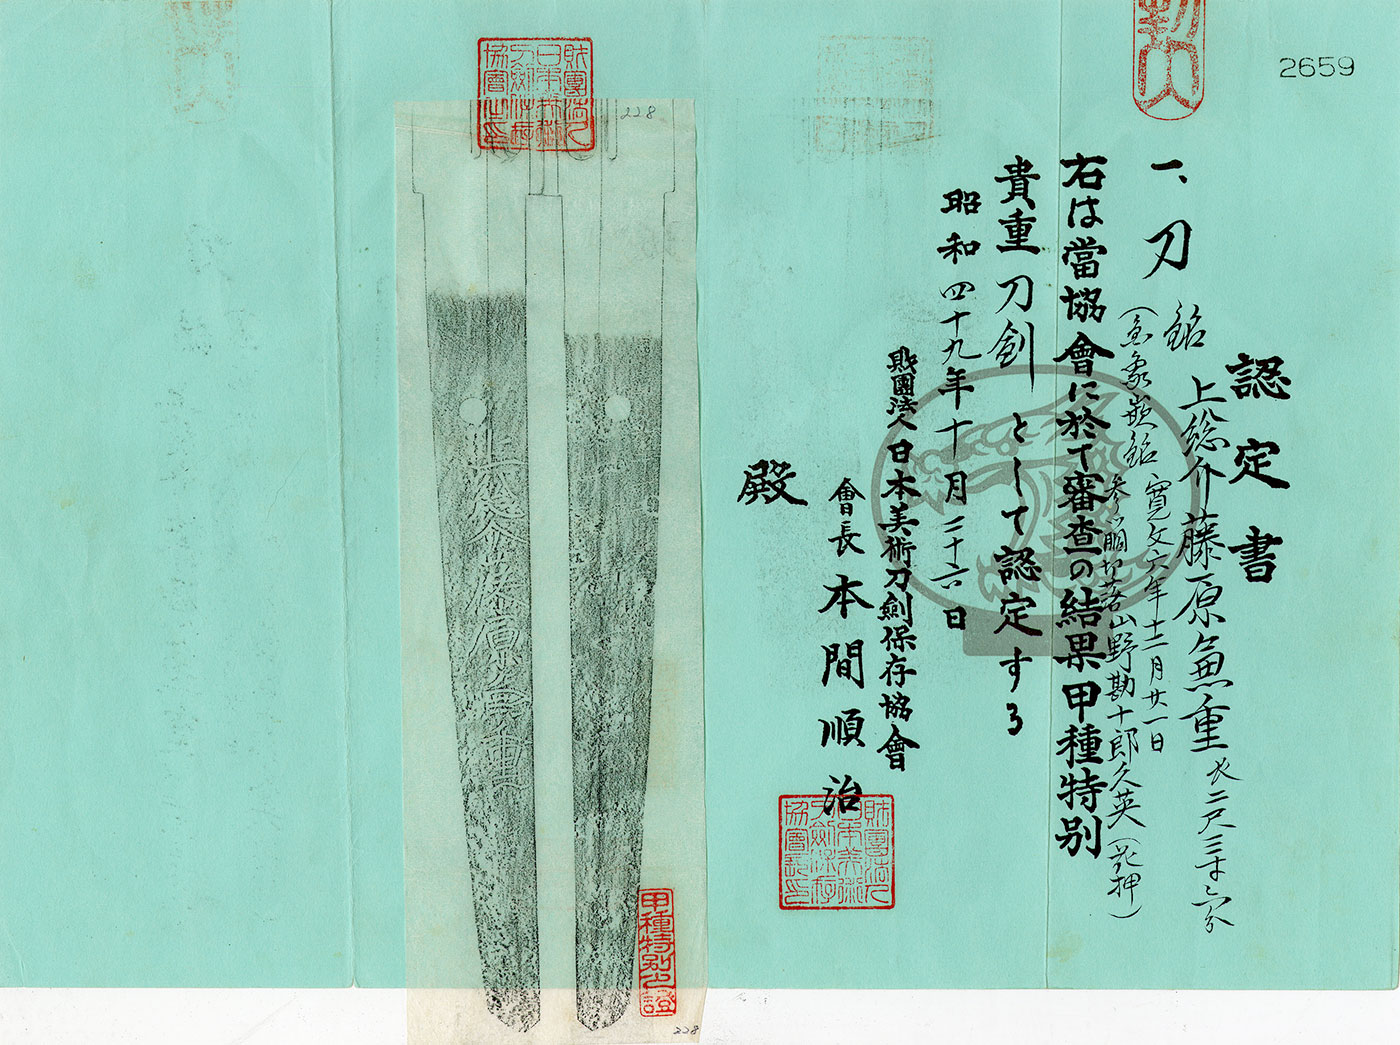 2659
認定書
一、刀 銘 上総介藤原兼重 長二尺三寸六分
寛文六年十二月廿一日
参ツ胴切落山野勘十郎久英(花押)
右は當協會に於て審査の結果甲種特別
貴重刀剣として認定する
昭和四十九年十月二十六日
財團法人日本美術刀劍保存協會
會長 本間順治
殿
228
上総介藤原兼重
甲種特別之證
228